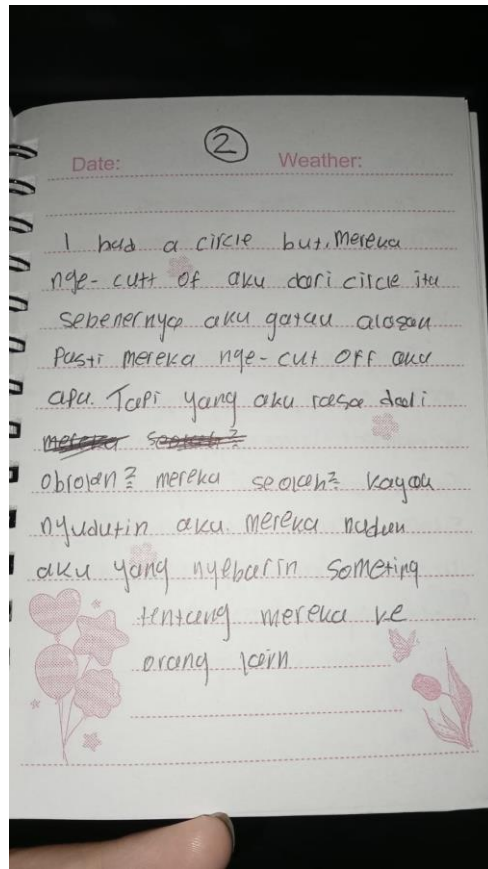 ②
Date: Weather:
I had a circle but, mereka
nge-cutt of aku dari circle itu
sebenernya aku gatau alasan
Pasti mereka nge-cut off aku
apa. Tapi yang aku rasa dari
mereka seolah²
obrolan² mereka seolah² kayak
nyudutin aku mereka nuduh
aku yang nyebarin someting
tentang mereka ke
orang lain